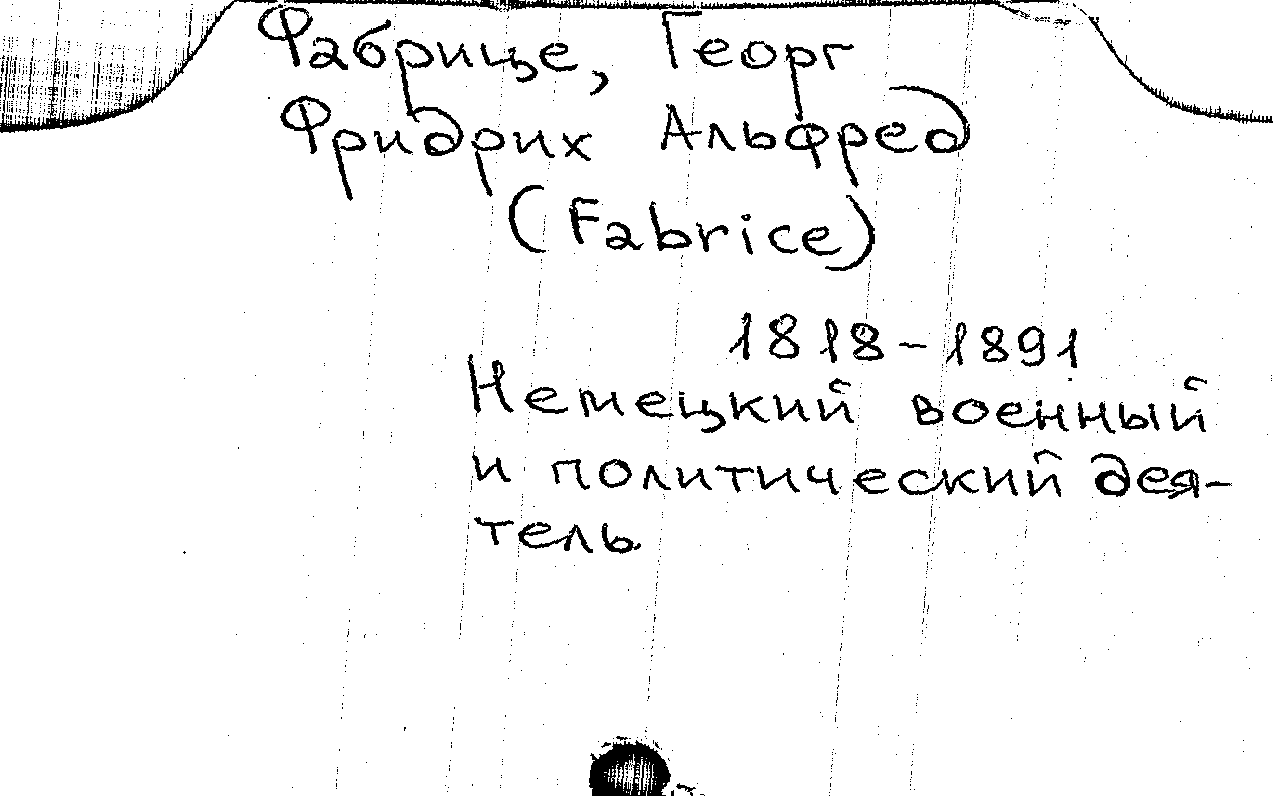 Фабрице, Георг
Фридрих Альфред
(Fabrice)
1818-1891
Немецкий военный
и политический дея-
тель